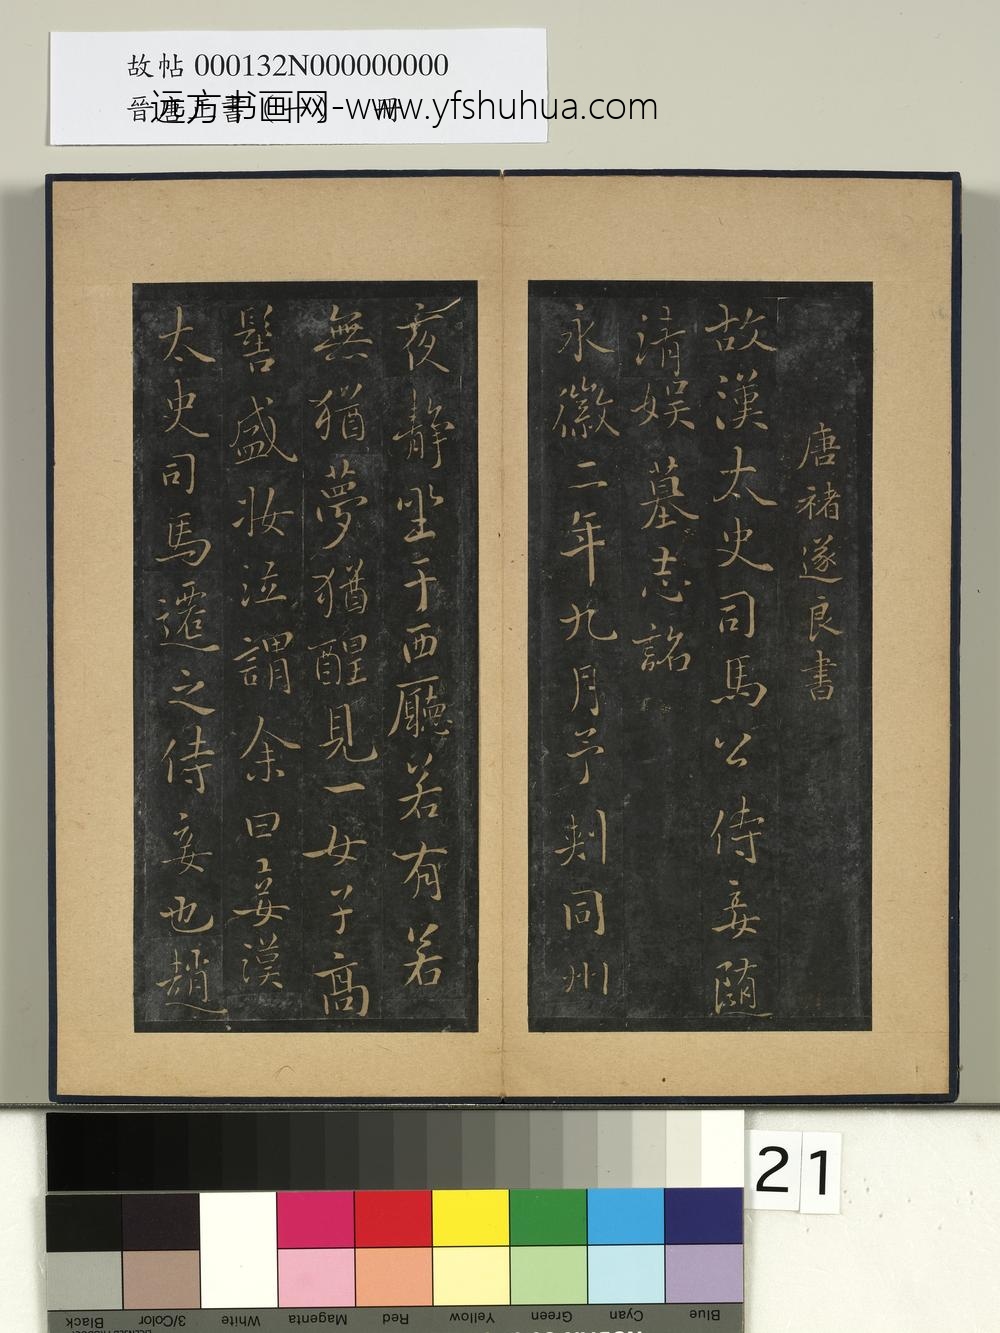 故帖 000132N000000000
远方书画网-www.yfshuhua.com
唐褚遂良書
故漢太史司馬公侍妾隨
清娱墓志銘
永徽二年九月予刺同州
夜靜坐于西廳若有若
無猶夢猶醒見一女子高
髻盛妝泣謂余曰妾漢
太史司馬遷之侍妾也趙
21
Blue
Cyan
Green
Yellow
Red
Magenta
White
3/Color
Black